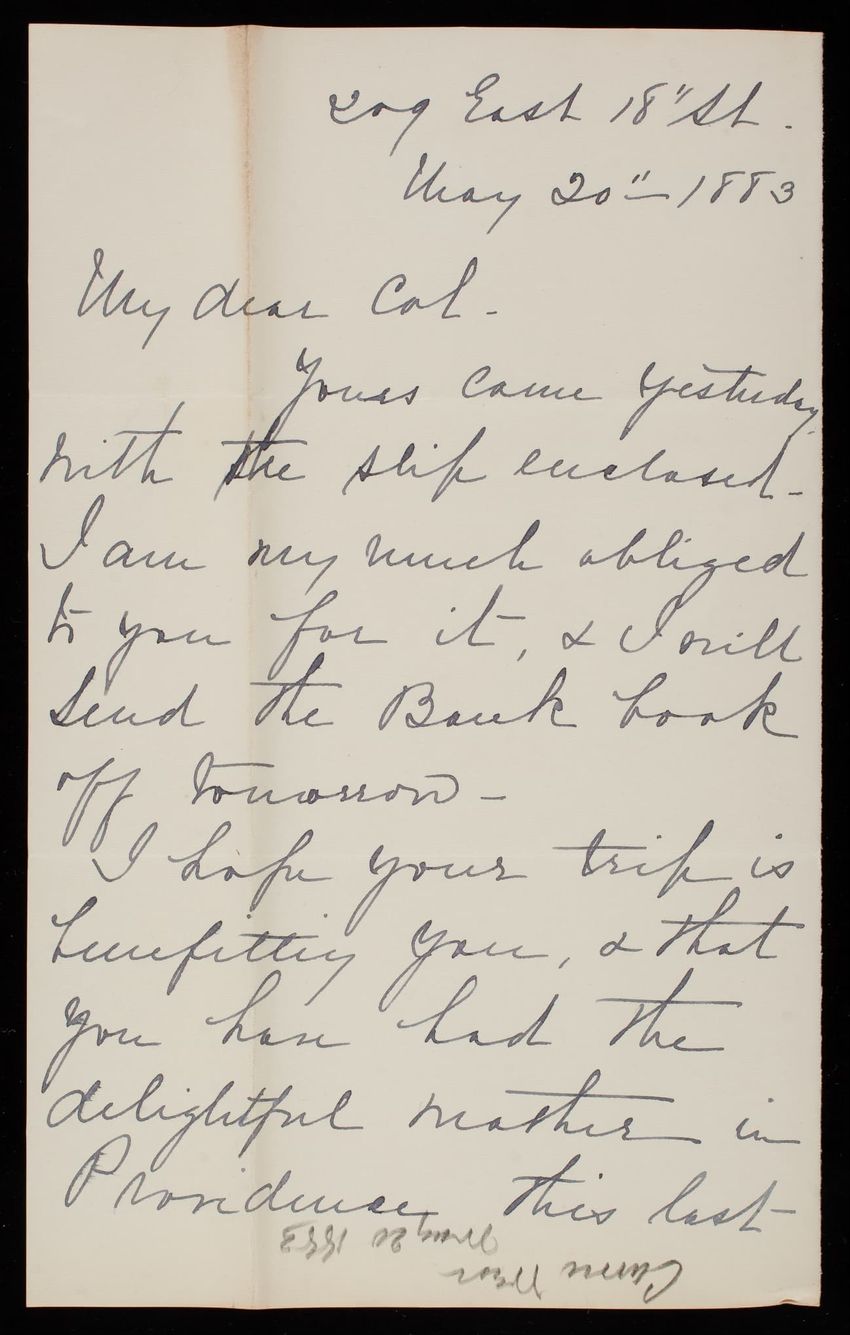 209 East 18" St.
May 20" - 1883
My dear Col -
Yours came yesterday,
with the slip enclosed -
I am very much obliged
to you for it, & I will
send the Bank book
off tomorrow -
I hope your trip is
benefitting you, & that
you have had the
delightful weather in
Providence this last
May 20 1883